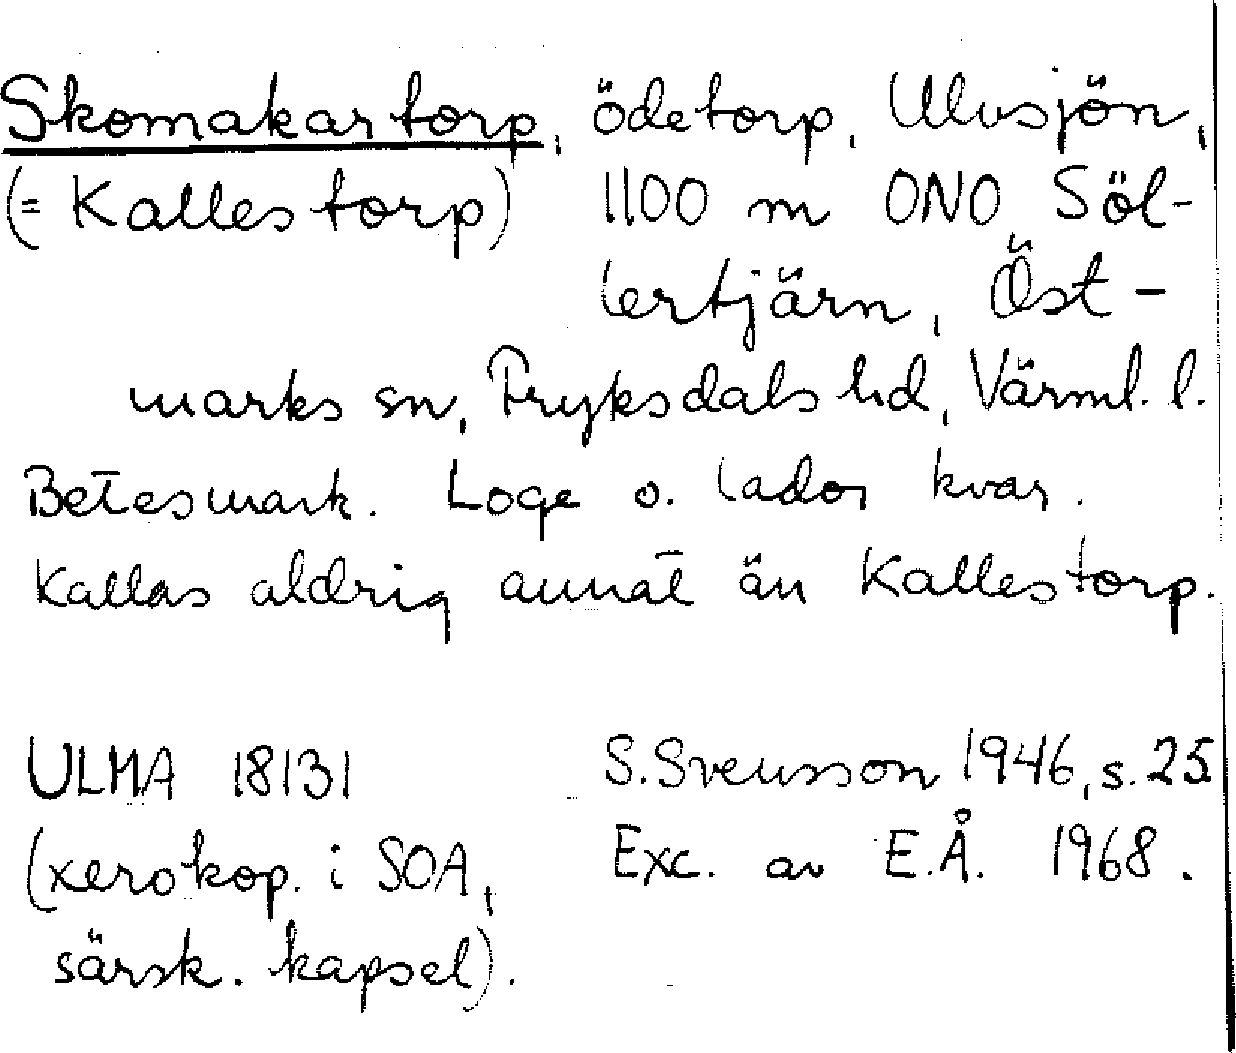 Skomakartorp, ödetorp, Ulvsjön,
(= Kallestorp) 1100 m ONO Söl-
lertjärn, Öst-
marks sn, Fryksdals hd, Värml. l.
Betesmark. Loge o. lador kvar.
Kallas aldrig annat än Kallestorp.
ULMA 18131 S. Svensson 1946, s. 25
(xerokop. i SOA, Exc. av E.Å. 1968.
särsk. kapsel).